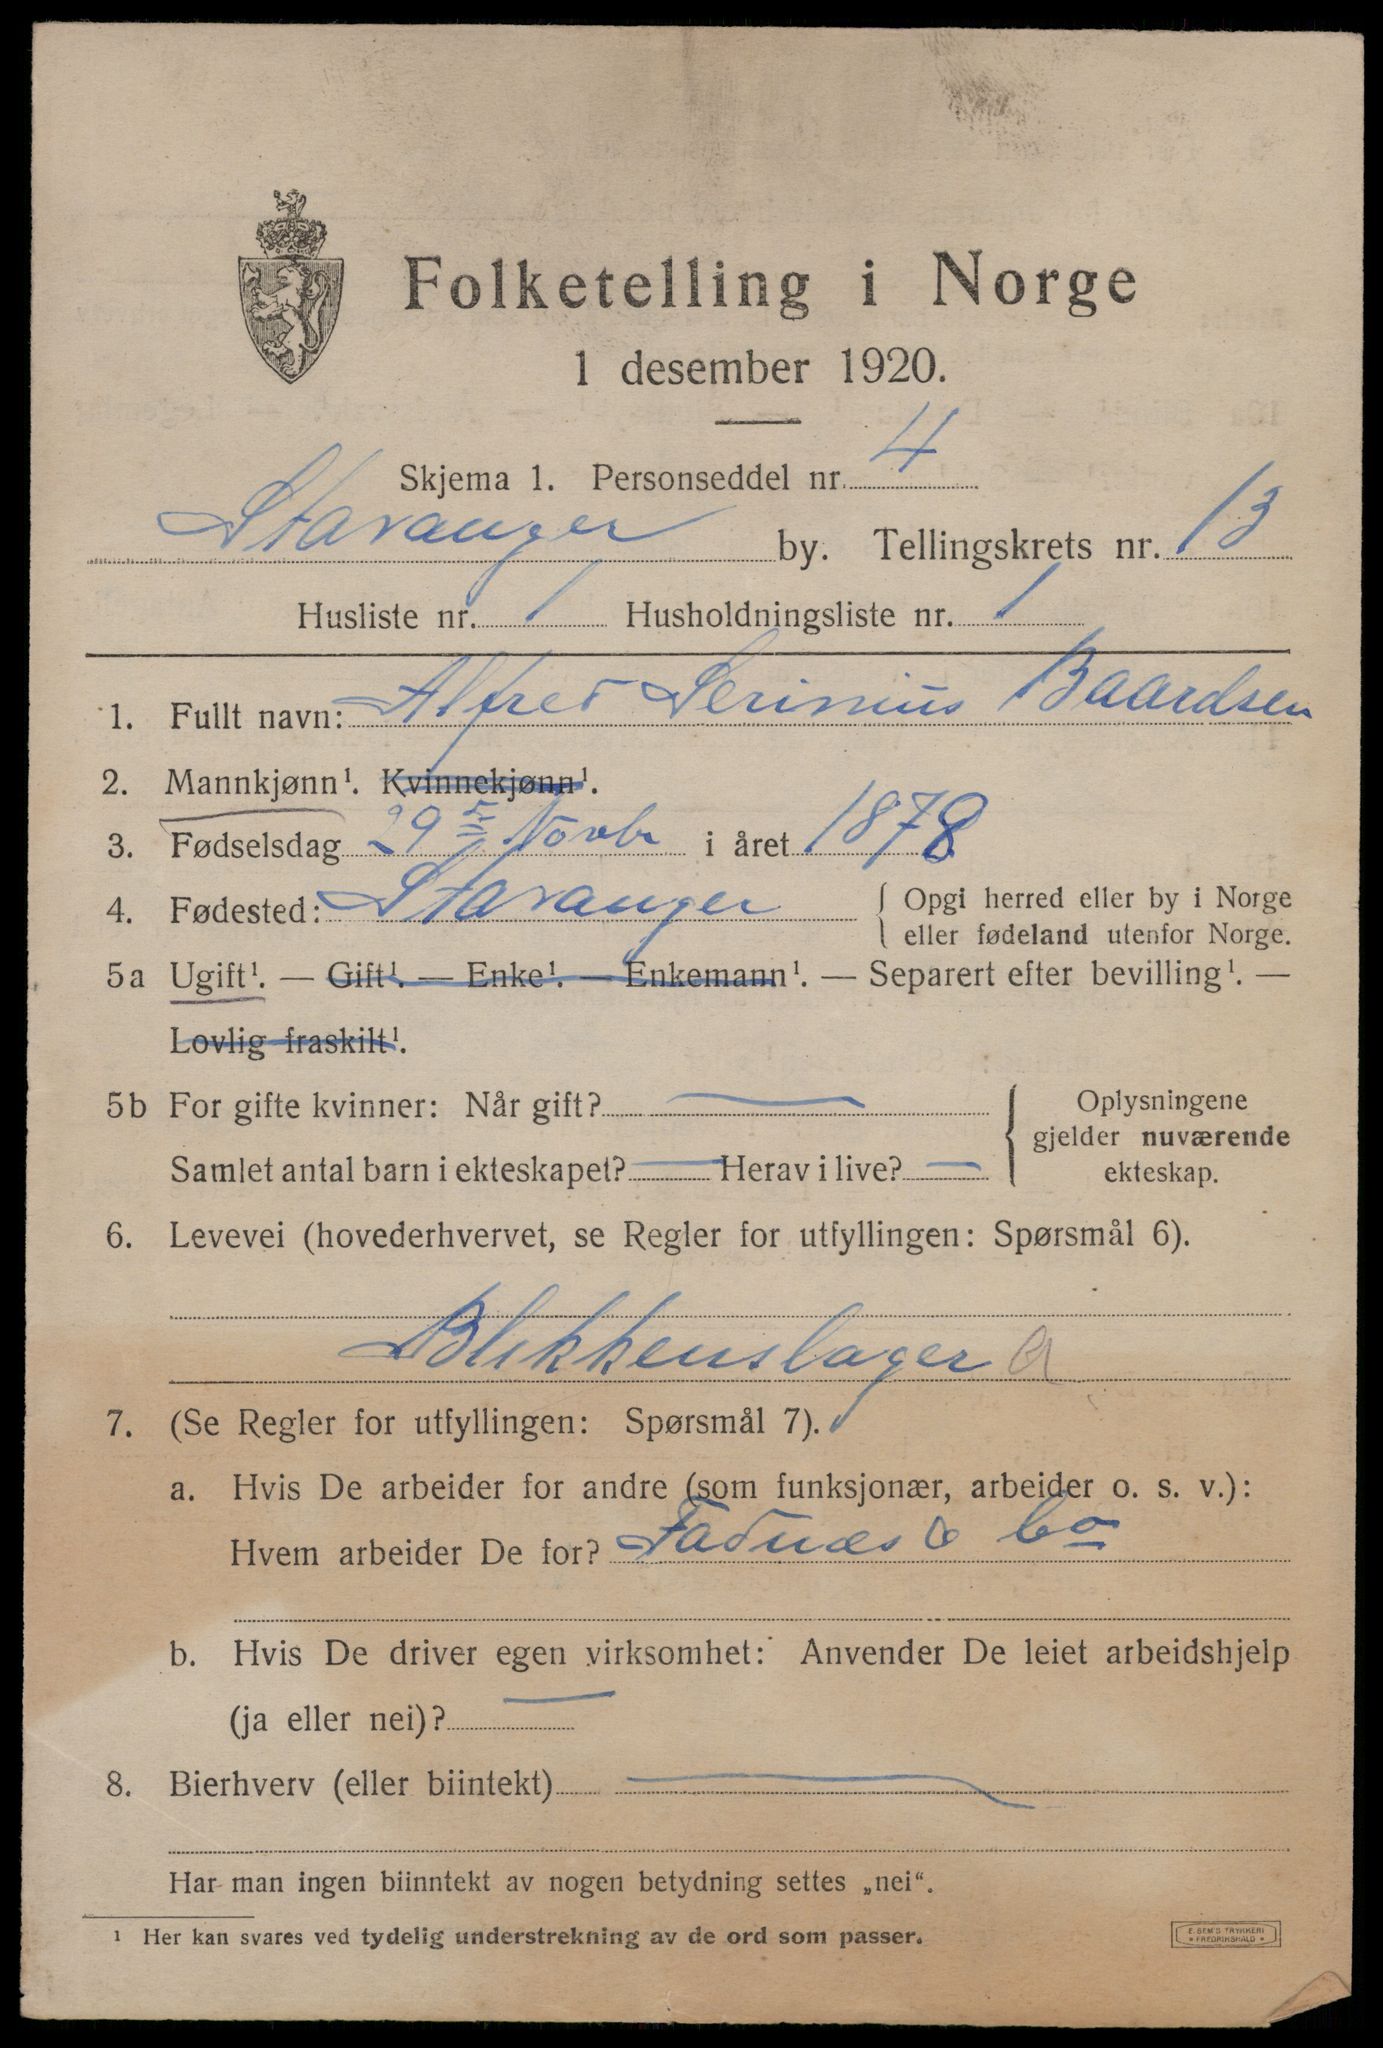 Folketelling i Norge
1 desember 1920.
Skjema 1. Personseddel nr. 4
Stavanger by. Tellingskrets nr. 13
Husliste nr. 1 Husholdningsliste nr. 1
1. Fullt navn: Alfred Serinius Baardsen
2. Mannkjønn¹. Kvinnekjønn¹.
3. Fødselsdag 29 Novbr i året 1878
4. Fødested: Stavanger { Opgi herred eller by i Norge
eller fødeland utenfor Norge.
5a Ugift¹. — Gift¹. — Enke¹. — Enkemann¹. — Separert efter bevilling¹. —
Lovlig fraskilt¹.
5b For gifte kvinner: Når gift? — { Oplysningene
gjelder nuværende
Samlet antal barn i ekteskapet? — Herav i live? — ekteskap.
6. Levevei (hovederhvervet, se Regler for utfyllingen: Spørsmål 6).
Blikkenslager a
7. (Se Regler for utfyllingen: Spørsmål 7).
a. Hvis De arbeider for andre (som funksjonær, arbeider o. s. v.):
Hvem arbeider De for? Fadnæs & Co
b. Hvis De driver egen virksomhet: Anvender De leiet arbeidshjelp
(ja eller nei)? —
8. Bierhverv (eller biintekt) —
Har man ingen biinntekt av nogen betydning settes „nei“.
¹ Her kan svares ved tydelig understrekning av de ord som passer.
E. SEM'S TRYKKERI
FREDRIKSHALD